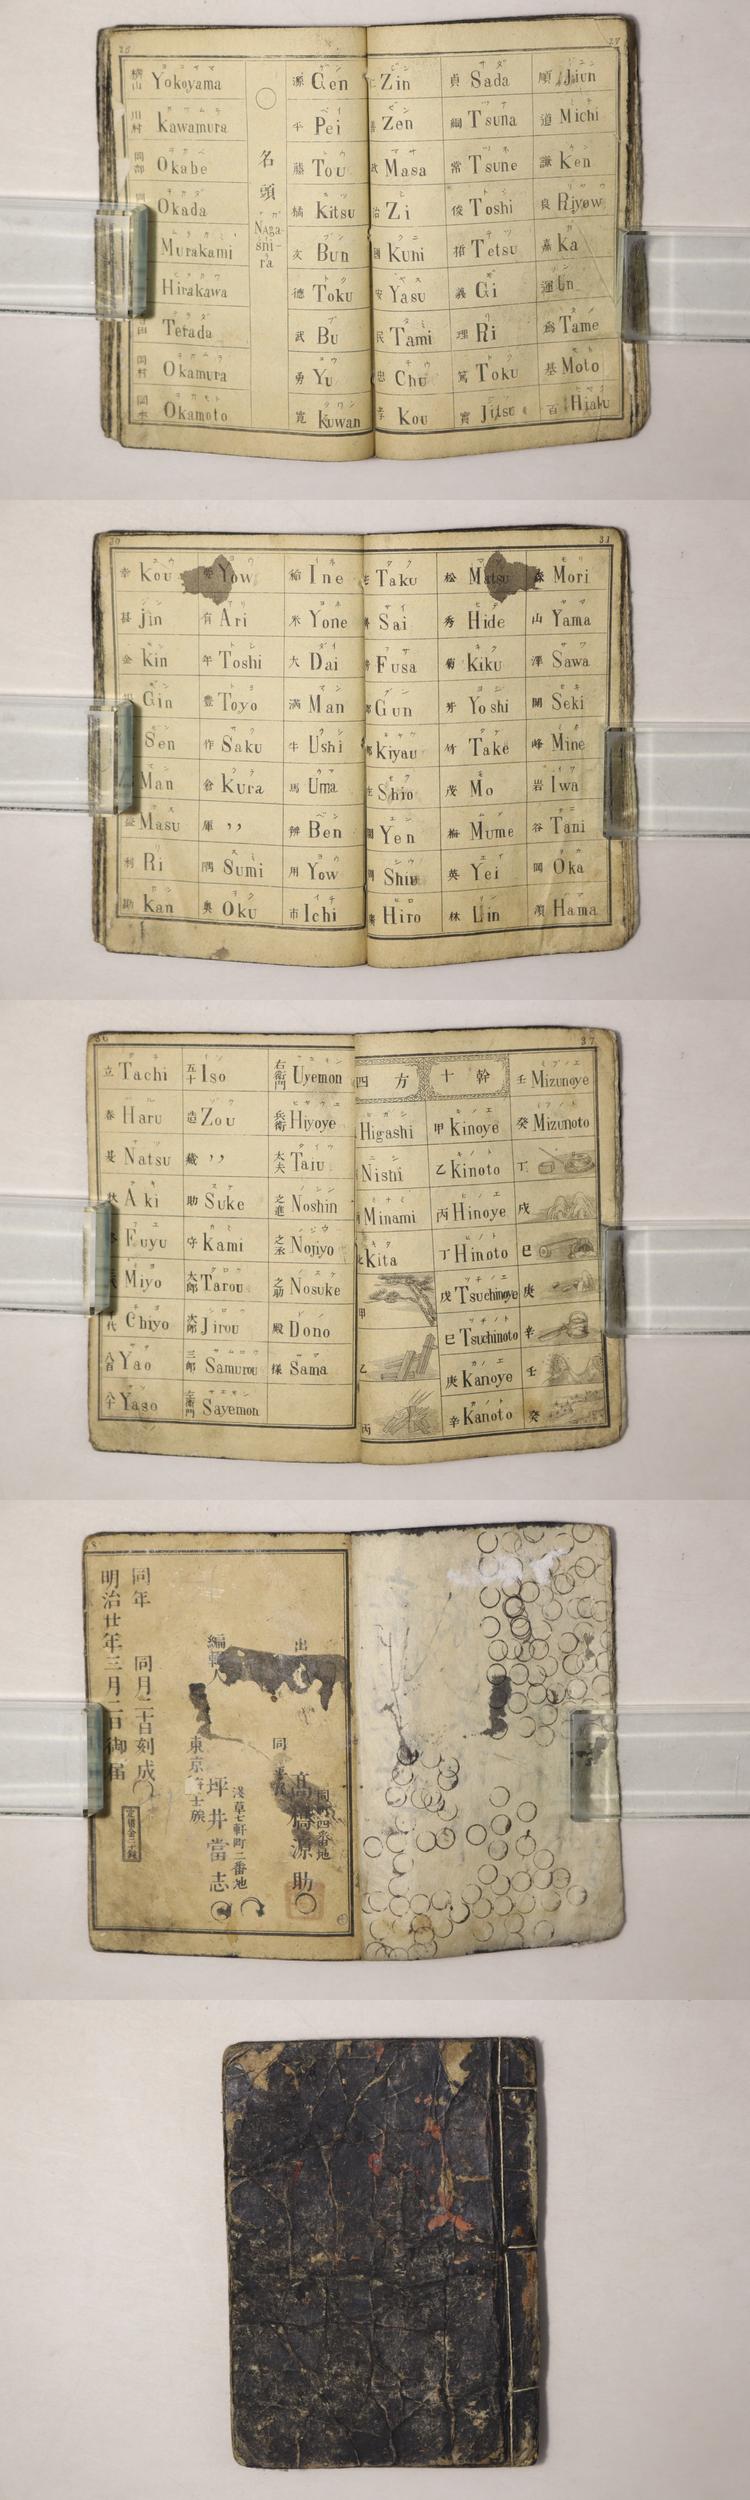 横山 Yokoyama ヨコヤマ
川村 Kawamura カワムラ
岡部 Okabe
Okada
Murakami
Hirakawa
Terada
岡村 Okamura
岡本 Okamoto オカモト
名頭
Naga-
sni-
ra
源 Gen ゲン
平 Pei ペイ
藤 Tou トウ
橘 Kitsu キツ
文 Bun ブン
德 Toku トク
武 Bu ブ
勇 Yu ユウ
寛 Kuwan クワン
Zin ジン
Zen ゼン
Masa マサ
Zi ジ
Kuni クニ
Yasu ヤス
民 Tami タミ
忠 Chu チウ
孝 Kou
貞 Sada サダ
綱 Tsuna ツナ
常 Tsune ツネ
俊 Toshi トシ
Tetsu テツ
義 Gi ギ
理 Ri リ
篤 Toku トク
實 Jitsu ジツ
順 Jiun ジユン
道 Michi ミチ
謙 Ken ケン
良 Riyow リヤウ
嘉 Ka カ
運 Un ウン
爲 Tame タメ
基 Moto モト
百 Hiaku ヒヤク
30
31
幸 Kou コウ
甚 Jin ジン
金 Kin キン
Gin ギン
Sen セン
Man マン
Masu マス
利 Ri リ
勘 Kan カン
Yow ヨウ
有 Ari アリ
年 Toshi トシ
豊 Toyo トヨ
作 Saku サク
倉 Kura クラ
庫 〃
隅 Sumi スミ
奥 Oku オク
稲 Ine イネ
米 Yone ヨネ
大 Dai ダイ
滿 Man マン
牛 Ushi ウシ
馬 Uma ウマ
辨 Ben ベン
用 Yow ヨウ
市 Ichi イチ
Taku タク
Sai サイ
Fusa フサ
Gun グン
Kiyau キヤウ
Shio
Yen エン
Shiu シウ
Hiro ヒロ
松 Matsu マツ
秀 Hide ヒデ
菊 Kiku キク
芳 Yoshi ヨシ
竹 Take タケ
茂 Mo モ
梅 Mume ムメ
英 Yei エイ
林 Lin リン
森 Mori モリ
山 Yama ヤマ
澤 Sawa サワ
關 Seki セキ
峰 Mine ミネ
岩 Iwa イワ
谷 Tani タニ
岡 Oka オカ
濱 Hama ハマ
36
37
立 Tachi タチ
春 Haru ハル
夏 Natsu ナツ
秋 Aki アキ
Fuyu フユ
Miyo ミヨ
代 Chiyo チヨ
八百 Yao ヤオ
八十 Yaso ヤソ
五十 Iso イソ
造 Zou ゾウ
藏 〃
助 Suke スケ
守 Kami カミ
太郎 Tarou タロウ
次郎 Jirou ジロウ
三郎 Samurou サムロウ
左衛門 Sayemon サエモン
右衛門 Uyemon ウエモン
兵衛 Hiyoye ヒヤウエ
太夫 Taiu タイウ
之進 Noshin ノシン
之丞 Nojiyo ノジヨウ
之助 Nosuke ノスケ
殿 Dono ドノ
様 Sama サマ
四方
Higashi ヒガシ
Nishi ニシ
Minami ミナミ
Kita キタ
甲
乙
丙
十幹
甲 Kinoye キノエ
乙 Kinoto キノト
丙 Hinoye ヒノエ
丁 Hinoto ヒノト
戊 Tsuchinoye ツチノエ
巳 Tsuchinoto ツチノト
庚 Kanoye カノエ
辛 Kanoto カノト
壬 Mizunoye ミヅノエ
癸 Mizunoto ミヅノト
丁
戊
巳
庚
辛
壬
癸
同町四番地
出
同
高橋源助
浅草七軒町二番地
編輯人
東京
士族
坪井當志
同年 同月二十日刻成
明治廿年三月二日御届
定價金二十錢